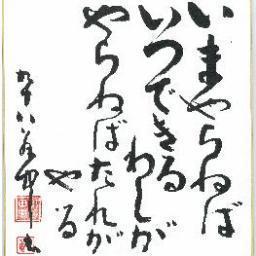 いまやらねば
いつできる
わしが
やらねばたれが
やる